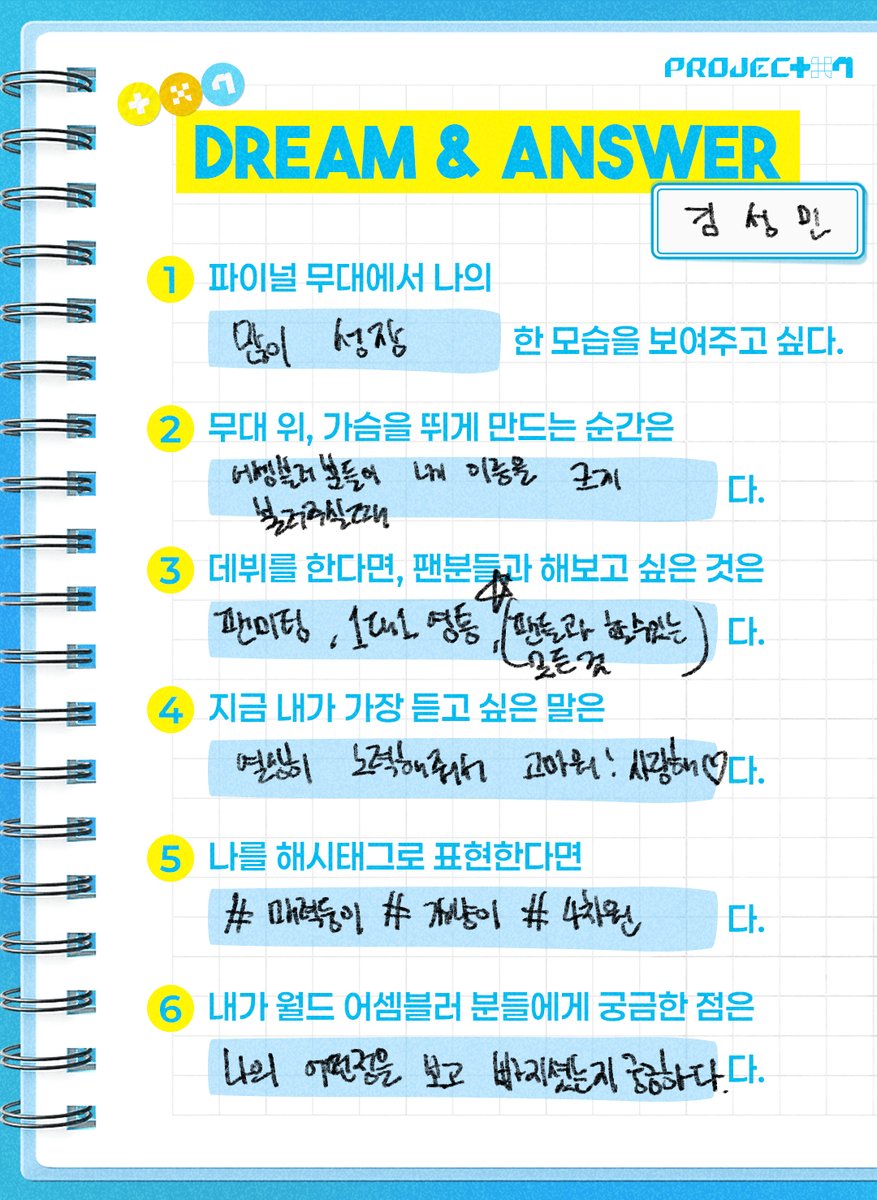 PROJECT 7
DREAM & ANSWER
김성민
1 파이널 무대에서 나의
많이 성장 한 모습을 보여주고 싶다.
2 무대 위, 가슴을 뛰게 만드는 순간은
어셈블러분들이 내 이름을 크게 다.
불러주실때
3 데뷔를 한다면, 팬분들과 해보고 싶은 것은
팬미팅, 1대1 영통, (팬들과 할수있는 다.
모든 것)
4 지금 내가 가장 듣고 싶은 말은
열심히 노력해줘서 고마워! 사랑해♡ 다.
5 나를 해시태그로 표현한다면
# 매력둥이 # 개냥이 # 4차원 다.
6 내가 월드 어셈블러 분들에게 궁금한 점은
나의 어떤점을 보고 빠지셨는지 궁금하다. 다.